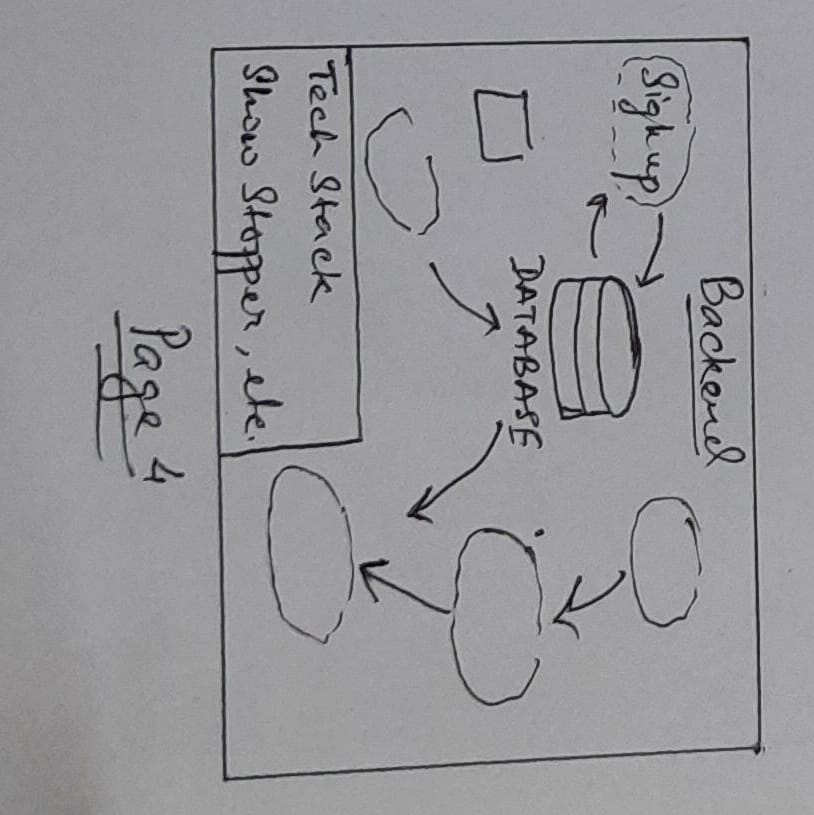 Backend
Signup
DATABASE
Tech Stack
Show Stopper, etc.
Page 4